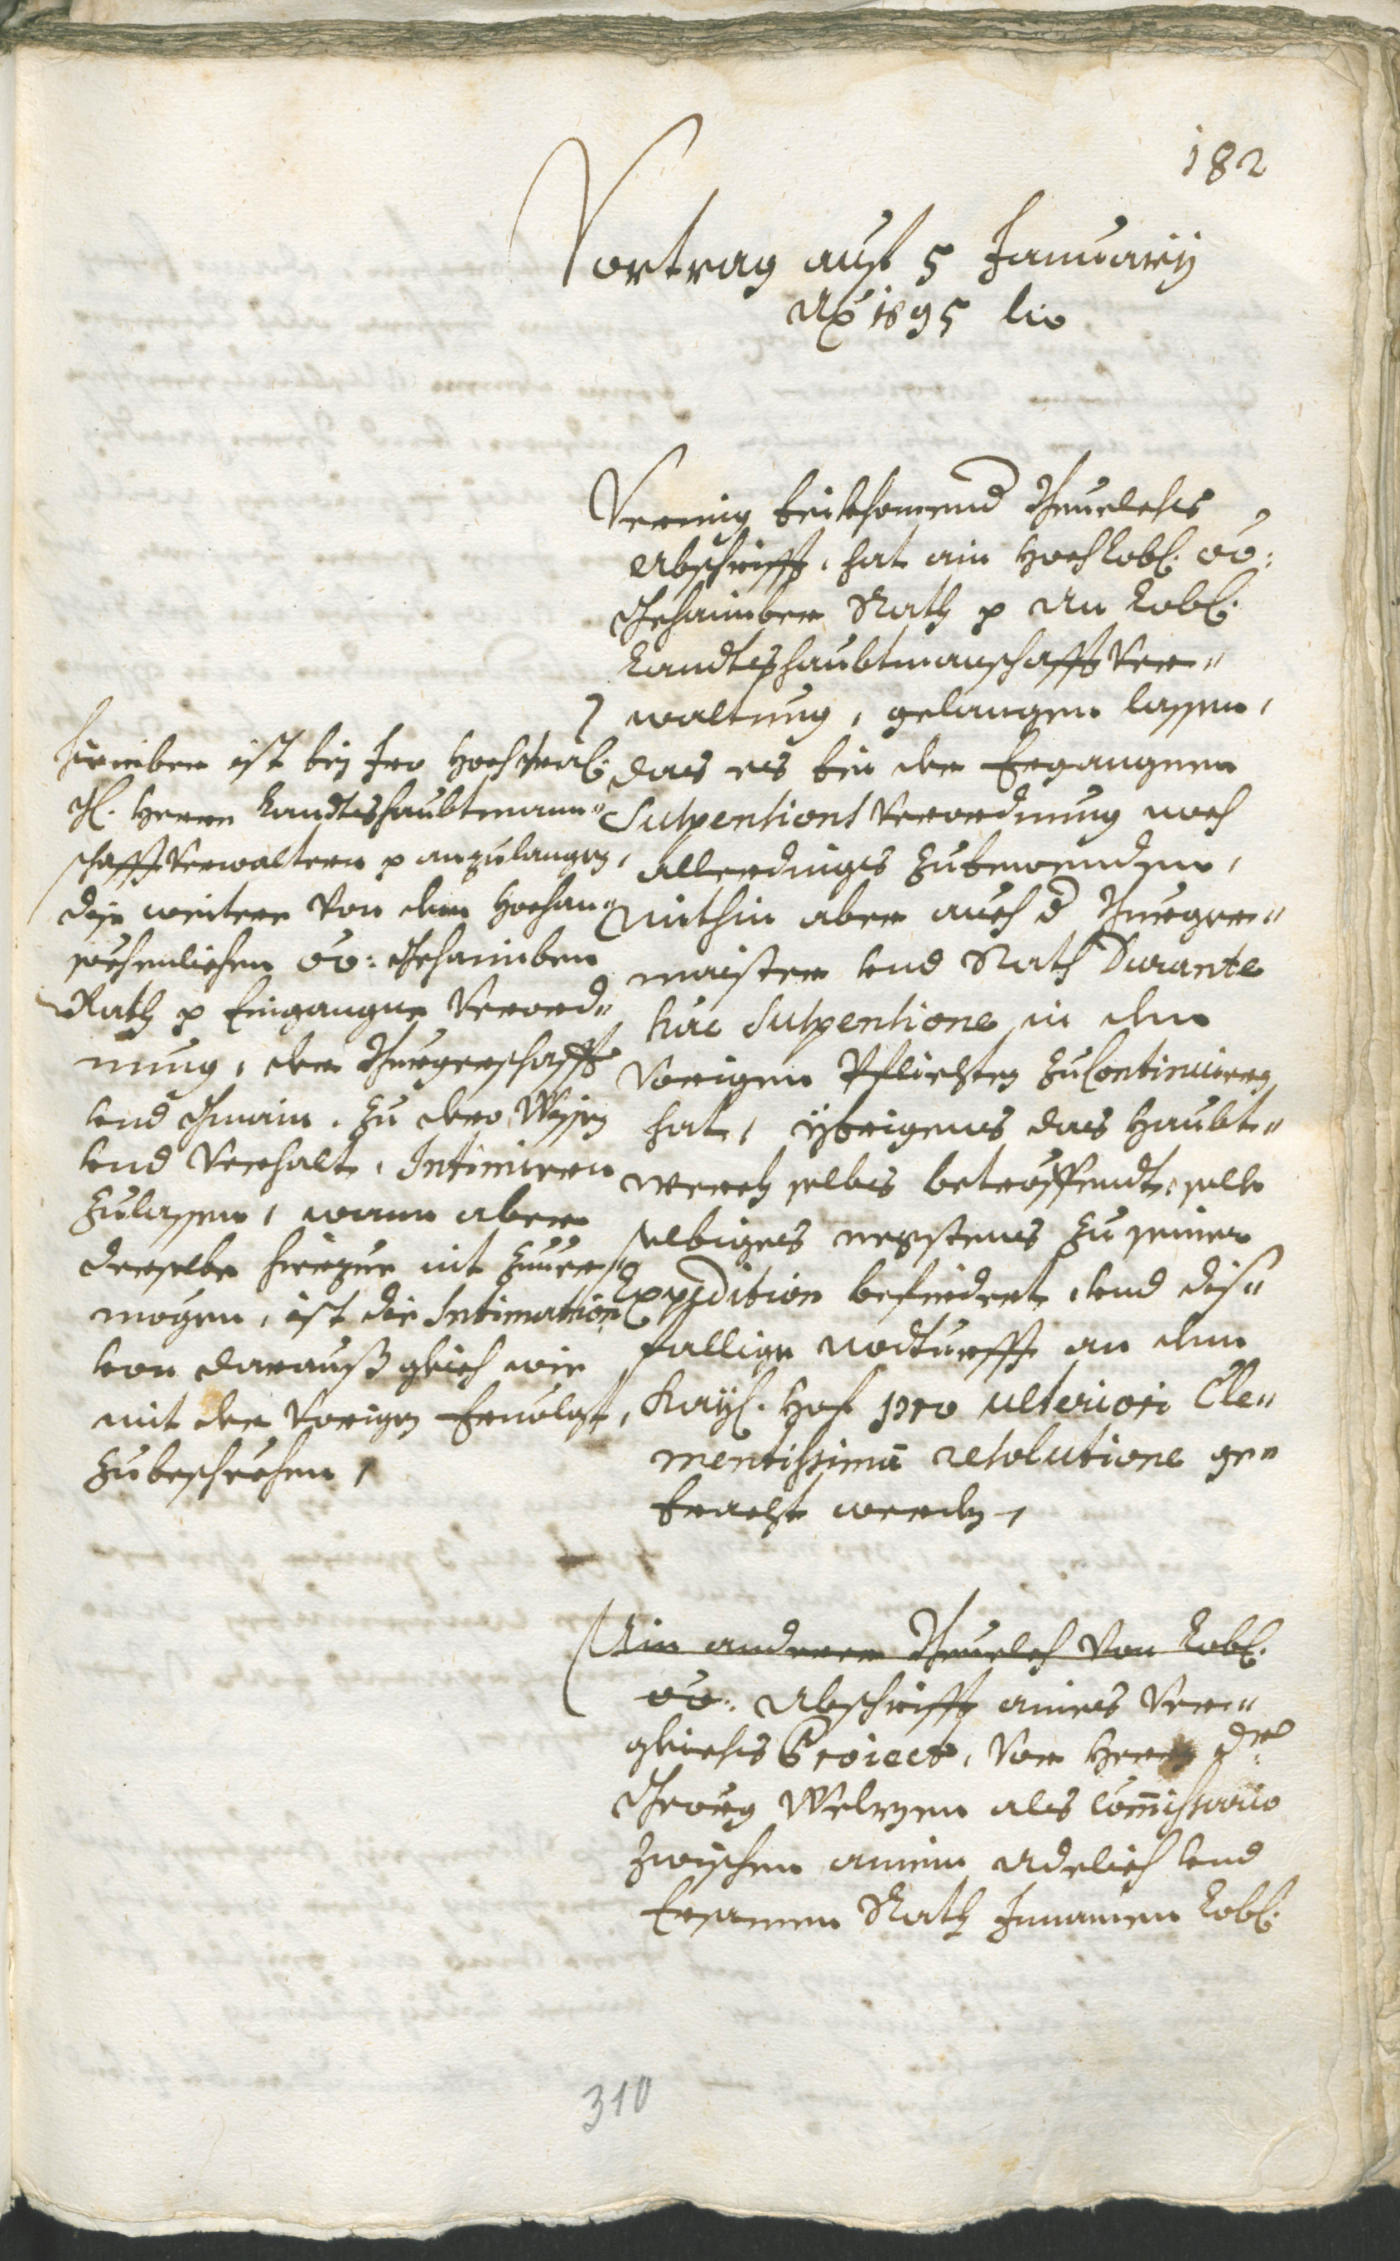 182
Vortrag auf 5 January
Ao 1695 etc
Vermig beikhomend Gmelchs
Abschrifft, hat ain Hochlobl: OÖ:
Gehaimber Rath p An Lobl:
Landtshaubtmanschafft Ver„
waltung, gelangen lassen,
das es bei der Ergangnen
Suspensions Verordnung noch
allerdings zubewenden,
mithin aber auch d Burger„
maister und Rath Durante
hac Suspensione in den
Vorigen Pflichten zu Continuiren
hat, ybrigens das Haubt„
werckh selbs betreffendt, solle
selbiges negstens zu seiner
Expedition befirdert, und dis„
fallige nodturfft an den
Kayl: Hof pro ulteriori Cle„
mentissima resolutione ge„
bracht werden,
Hieriber ist bey Iro Hochgräfl:
Gl: Herrn Landtshaubtmann„
schafft Verwaltern p anzulangen,
dise weitere von dem Hochan„
sechenlichen OÖ: Gehaimben
Rath p Eingangne Verord„
nung, der Burgerschafft
und Gmain, zu dero Wissen
und Verhalt, Intimiren
zulassen, wann aber
derselbe hierzue nit zuver„
mögen, ist die Intimation
von daraus gleich wie
mit der Vorigen Ervolgt,
zubeschechen,
Ain anderer Gmelch von Lobl:
OÖ: Abschrifft aines Ver„
gleichs Project, von Herrn Dr:
Georg Welzen als Commissario
zwischen ainem Adelich und
Ersamen Rath Innamen Lobl:
310